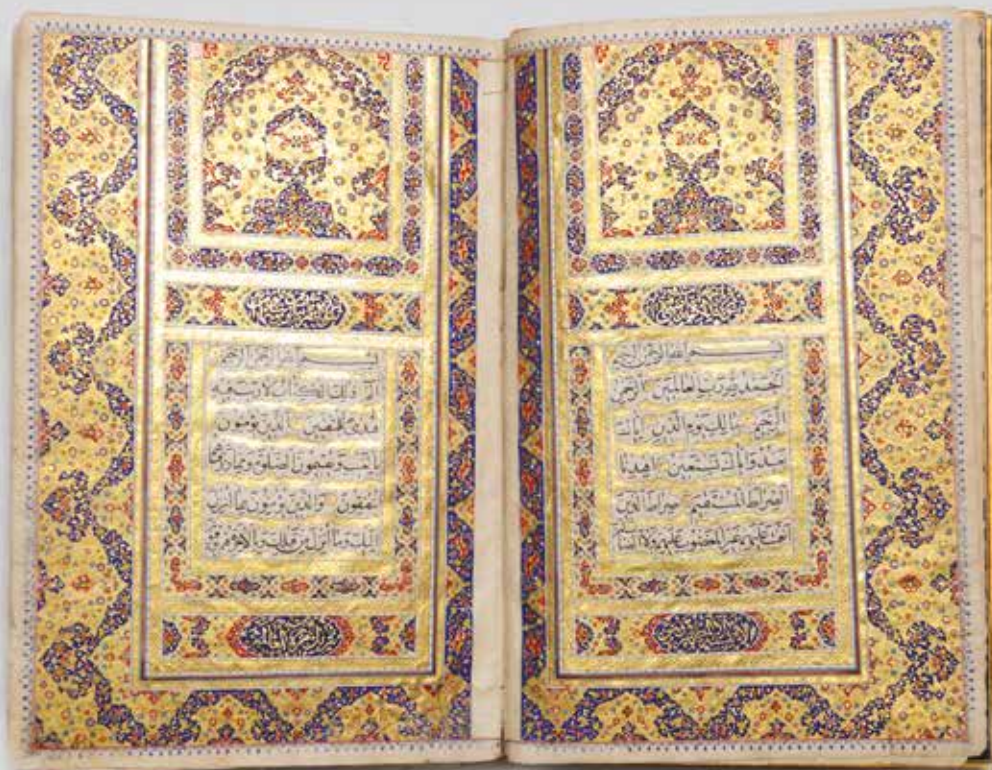 بسم الله الرحمن الرحيم
الحمد لله رب العالمين الرحمن
الرحيم مالك يوم الدين اياك
نعبد واياك نستعين اهدنا
الصراط المستقيم صراط الذين
انعمت عليهم غير المغضوب عليهم ولا الضا
بسم الله الرحمن الرحيم
الم ذلك الكتاب لا ريب فيه
هدى للمتقين الذين يؤمنون
بالغيب ويقيمون الصلوة ومما
ينفقون والذين يؤمنون بما انزل
اليك وما انزل من قبلك وبالاخرة هم